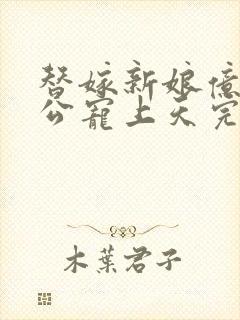 替嫁新娘億
公寵上天完
木葉君子